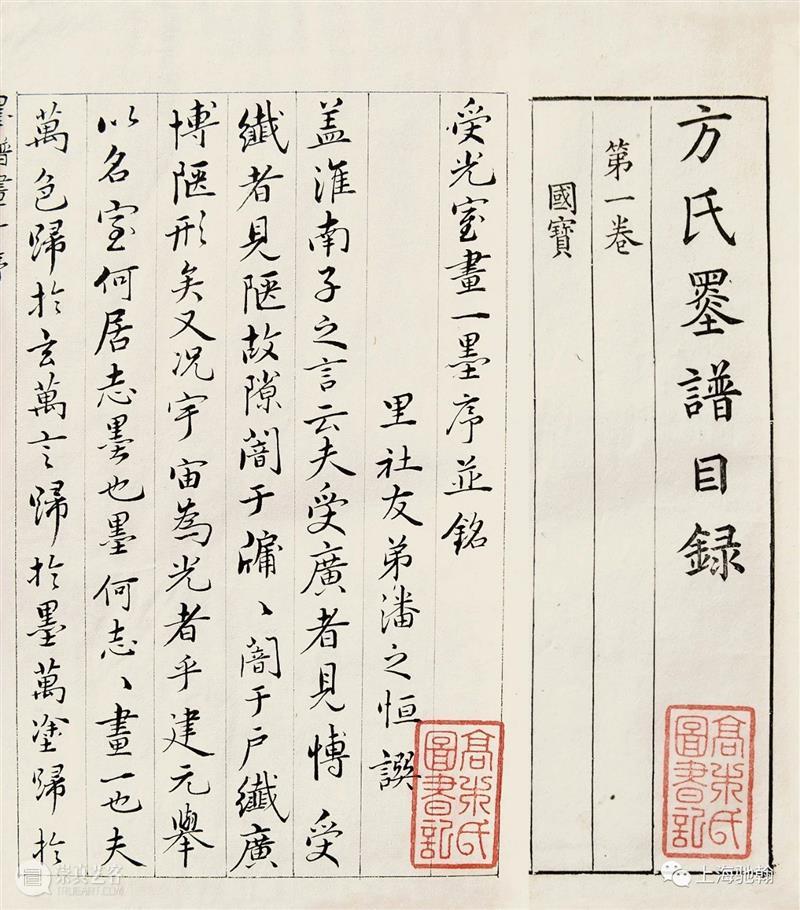 方氏墨譜目録
第一卷
國寶
受光室畫一墨序並銘
里社友弟潘之恒譔
盖淮南子之言云夫受廣者見博受
纖者見陿故隙闇于牖丶闇于户纖廣
博陿形矣又况宇宙為光者乎建元舉
以名室何居志墨也墨何志丶畫一也夫
萬色歸於玄萬言歸於墨萬塗歸於
墨譜畫一序
圖書記
圖書記
崇真艺客
TRUEART.COM
上海驰翰